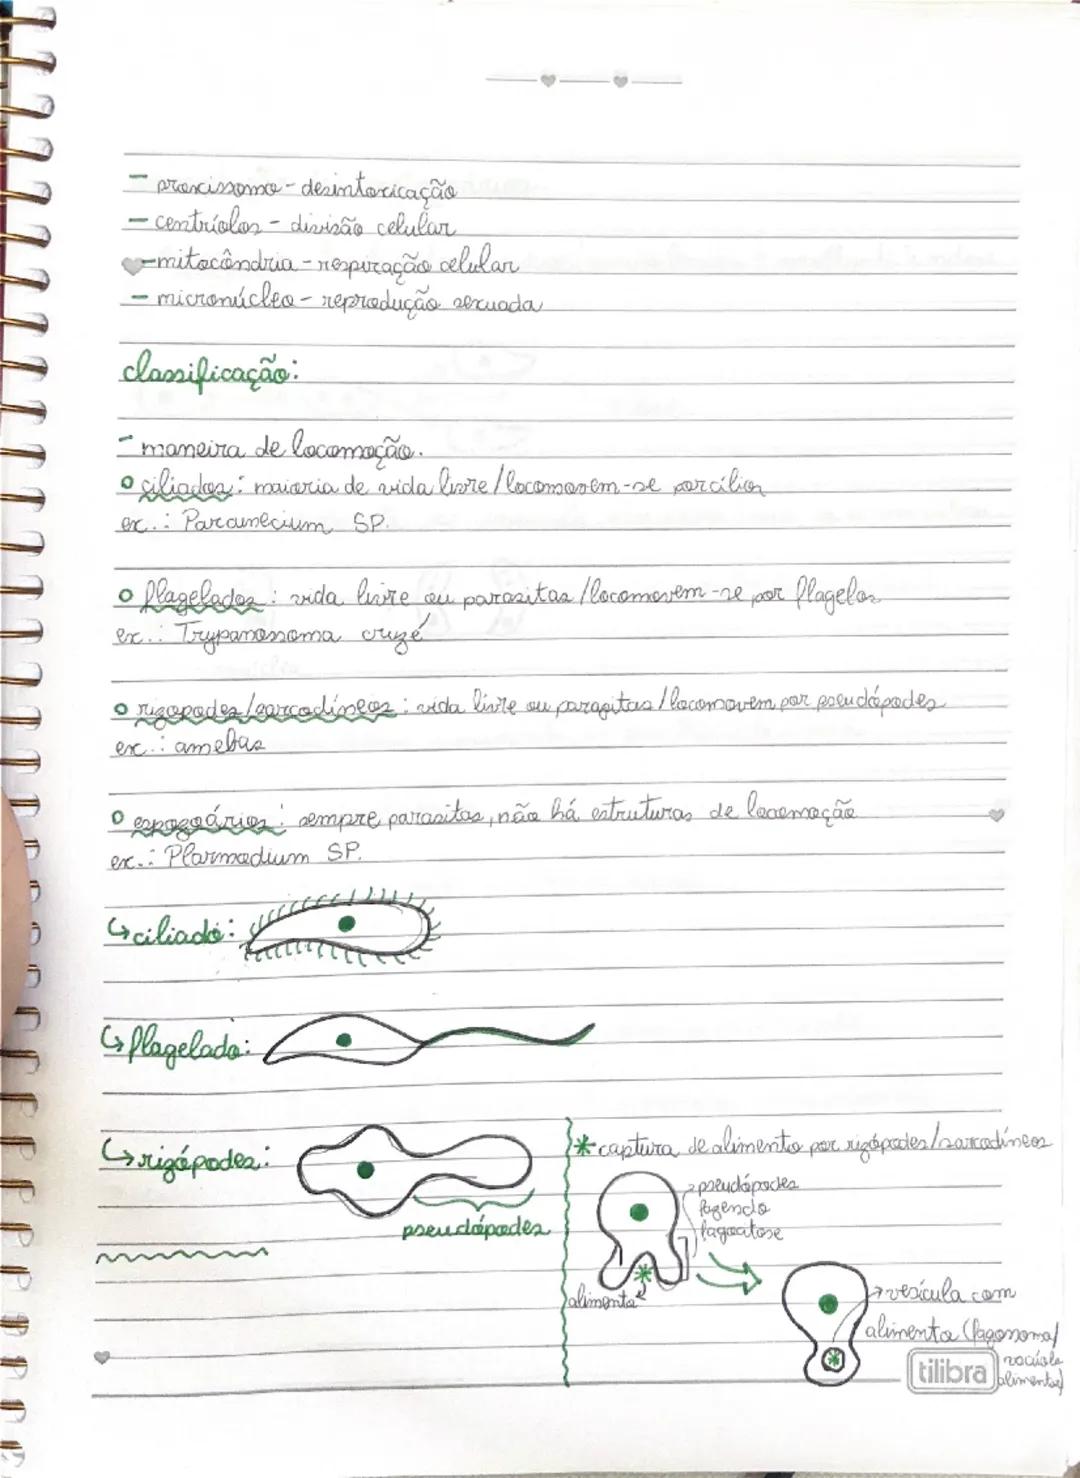 - proxissomo - desintoxicação
- centríolos - divisão celular
- mitocôndria - respiração celular
- micronúcleo - reprodução sexuada
classificação:
- maneira de locomoção.
o ciliados: maioria de vida livre/locomovem-se por cílios
ex.: Paramecium SP.
o flagelados: vida livre ou parasitas/locomovem-se por flagelos
ex.: Trypanossoma cruzé
o rizopodes/sarcodíneos: vida livre ou parasitas/locomovem por pseudópodes
ex.: amebas
o espozoários: sempre parasitas, não há estruturas de locomoção
ex.: Plasmodium SP.
↳ ciliado:
↳ flagelado:
↳ rizópodes:
pseudópodes
* captura de alimento por rizópodes/sarcodíneos
pseudópodes
fazendo
fagocitose
alimento
→ vesícula com
alimento (fagossomo/
vacúolo
alimentar)
tilibra